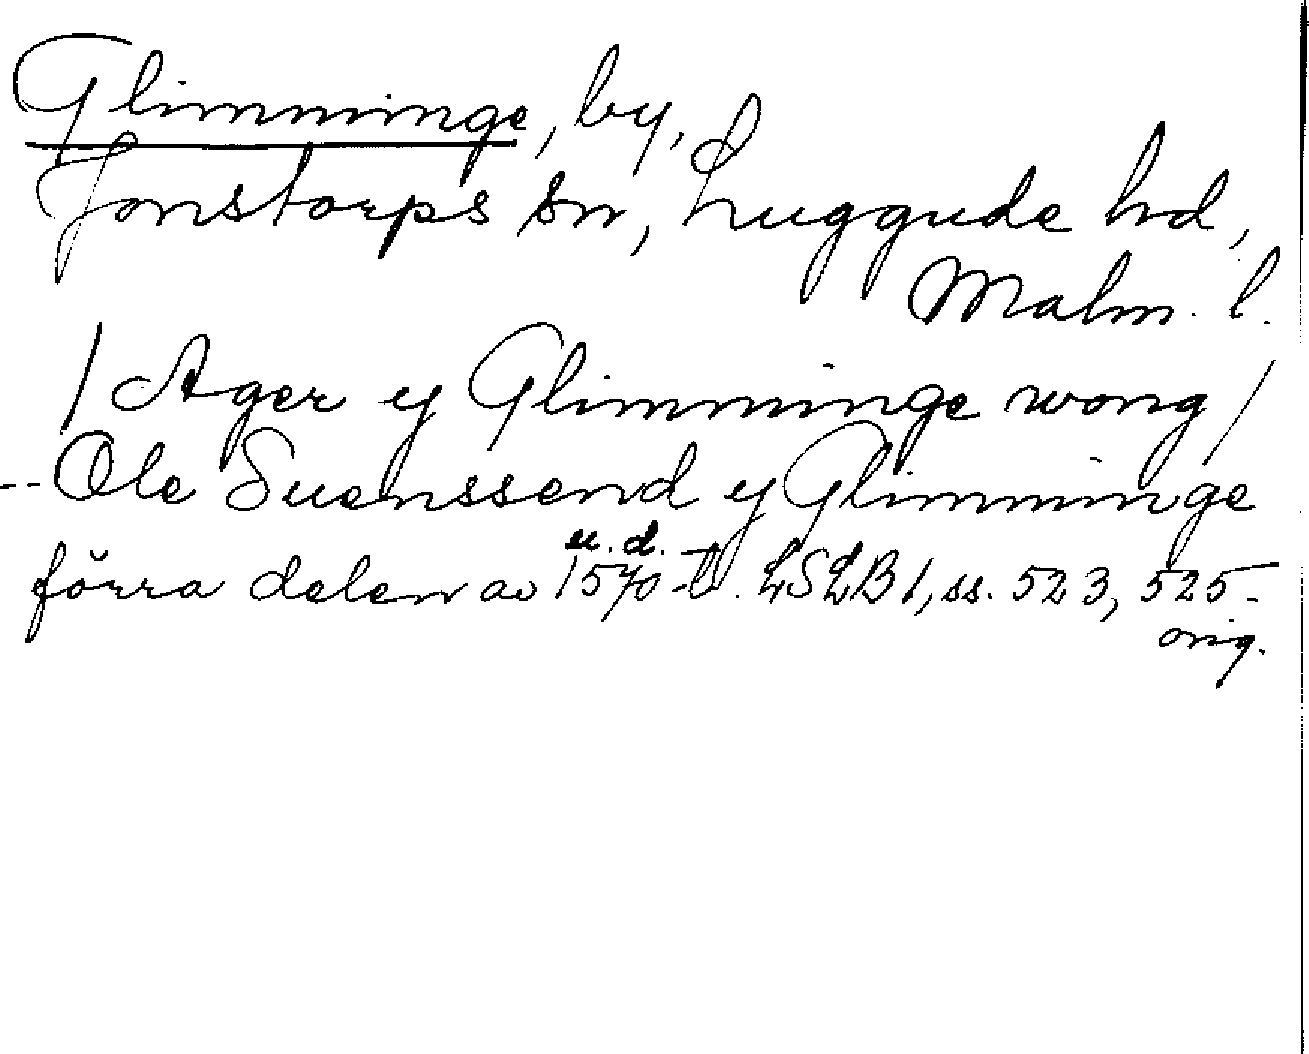 Glimminge, by,
Jonstorps sn, Luggude hd,
Malm. l.
/ Ager y Glimminge wong /
-- Ole Suenssend y Glimminge
u. d.
förra delen av 1570-t. LSLB 1, ss. 523, 525.
orig.